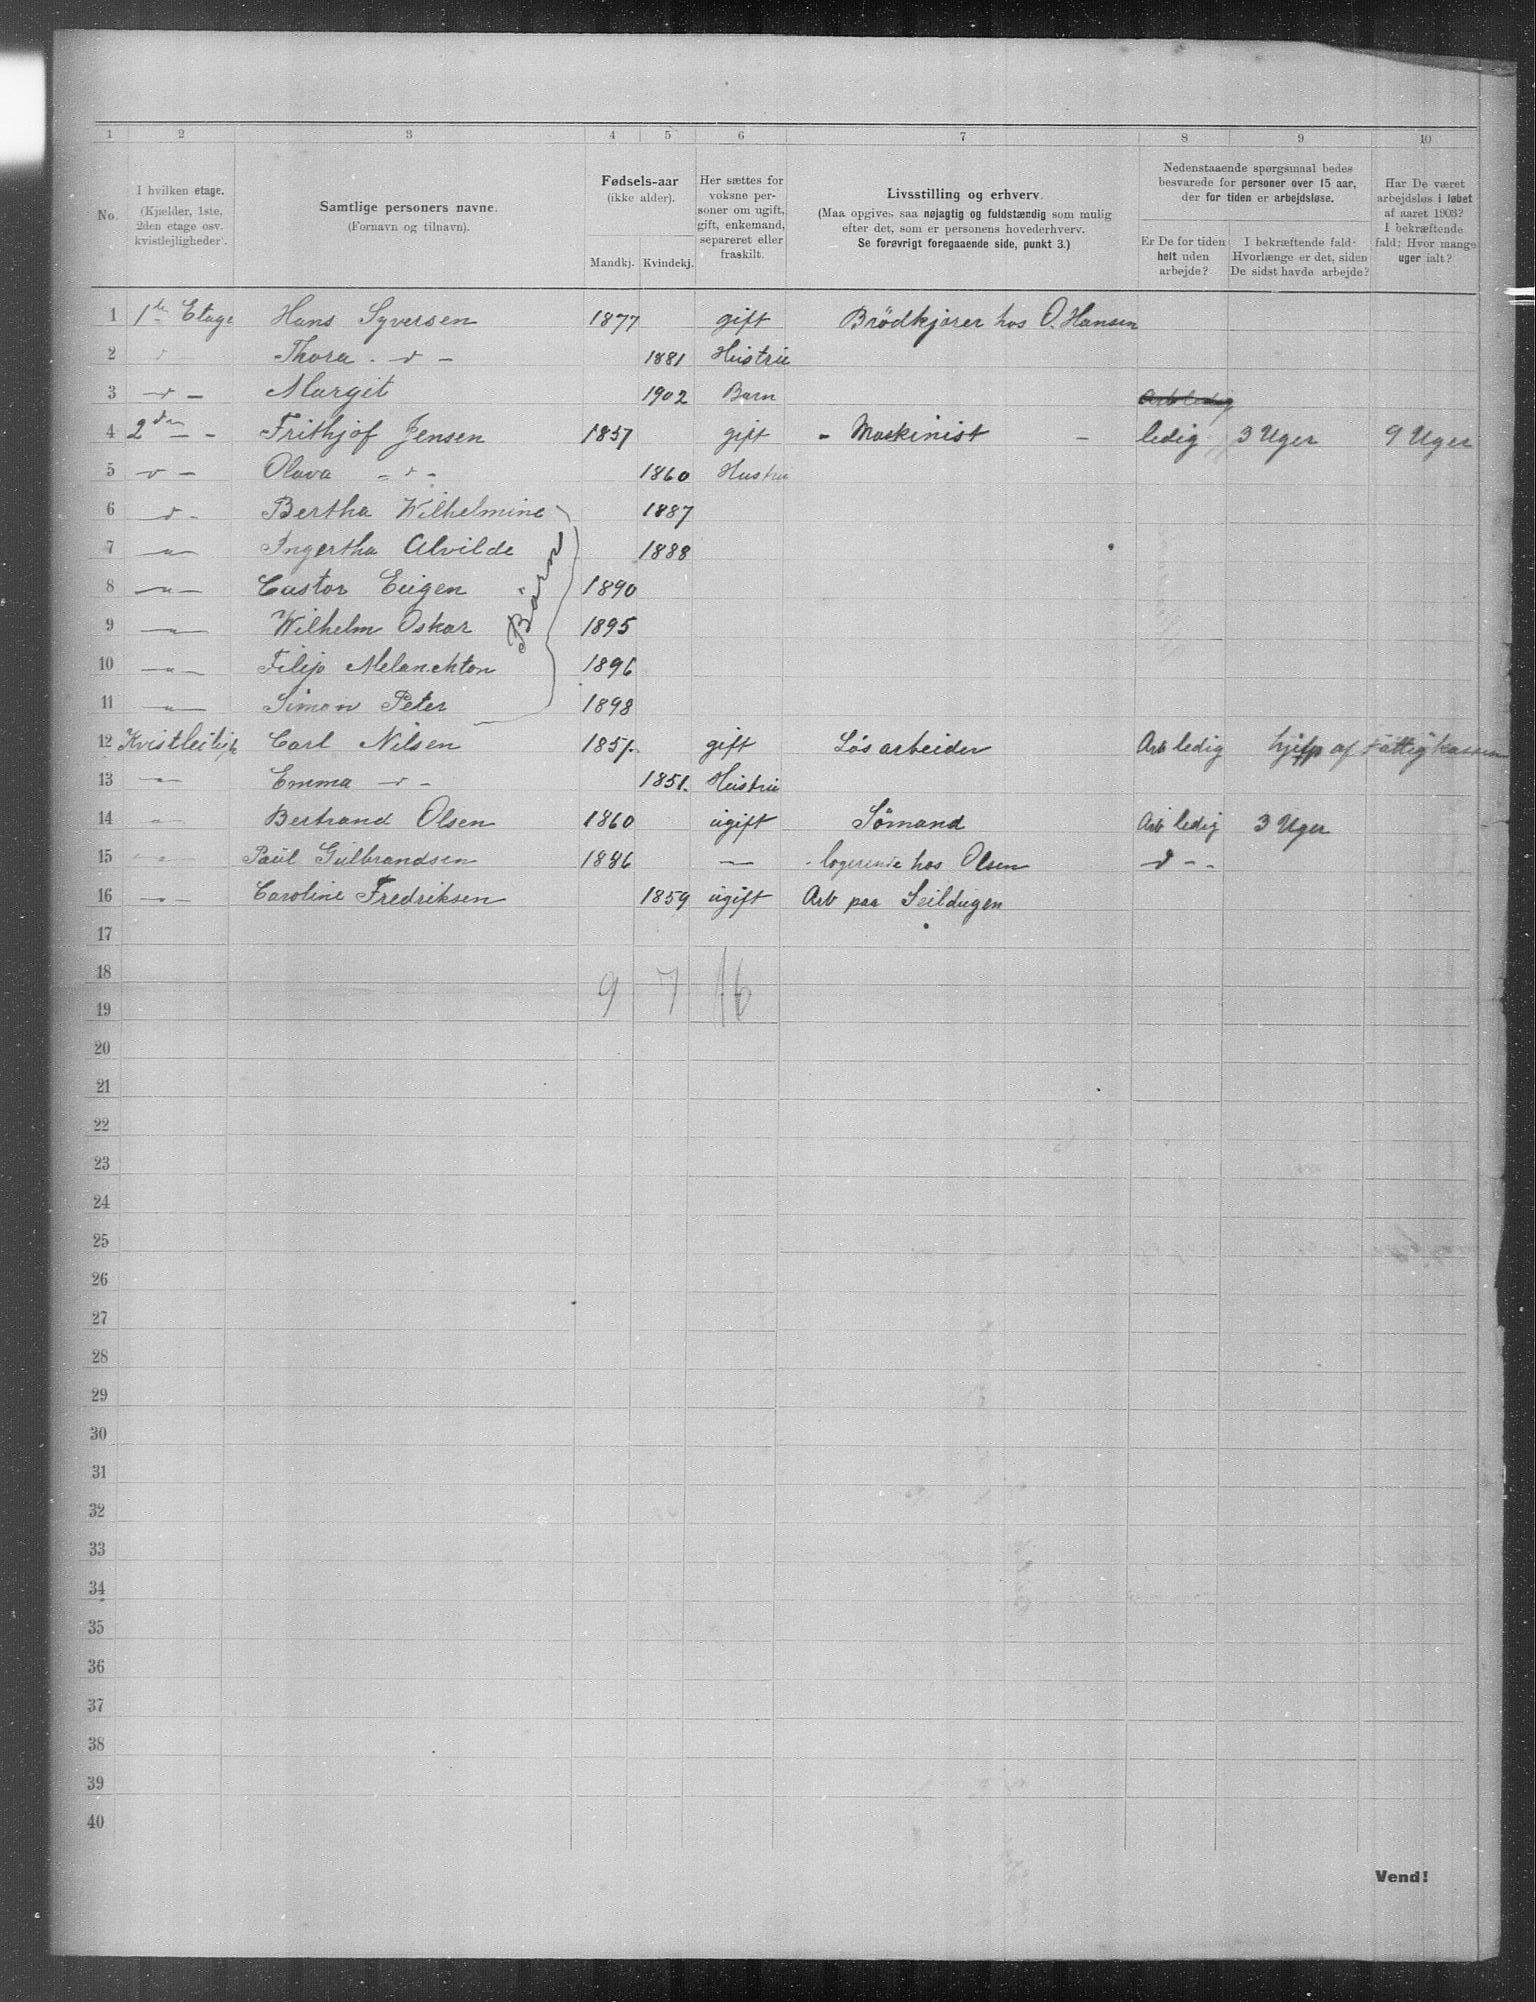 1 2 3 4 5 6 7 8 9 10
No.
I hvilken etage.
(Kjælder, 1ste,
2den etage osv.
kvistlejligheder).
Samtlige personers navne.
(Fornavn og tilnavn).
Fødsels-aar
(ikke alder).
Mandkj. Kvindekj.
Her sættes for
voksne per-
soner om ugift,
gift, enkemand,
separeret eller
fraskilt.
Livsstilling og erhverv.
(Maa opgives saa nøjagtig og fuldstændig som mulig
efter det, som er personens hovederhverv.
Se forøvrigt foregaaende side, punkt 3.)
Nedenstaaende spørgsmaal bedes
besvarede for personer over 15 aar,
der for tiden er arbejdsløse.
Er De for tiden
helt uden
arbejde?
I bekræftende fald:
Hvorlænge er det, siden
De sidst havde arbejde?
Har De været
arbejdsløs i løbet
af aaret 1903?
I bekræftende
fald: Hvor mange
uger ialt?
1 1ste Etage Hans Syversen 1877 gift Brödkjører hos O. Hansen
2 Thora - d - 1881 Hustru
3 - d - Margit 1902 Barn Arb ledig
4 2den - - Frithjof Jensen 1857 gift - Maskinist - ledig 3 Uger 9 Uger
5 - d - Olava - d - 1860 Hustru
6 - d - Bertha Wilhelmine 1887
7 - " - Ingertha Alvilde 1888
8 - " - Castor Eugen 1890
Börn
9 - " - Wilhelm Oskar 1895
10 - " - Filip Melanchton 1896
11 - " - Simon Peter 1898
12 Kvistleiligh Carl Nilsen 1851. gift Løsarbeider Arb ledig hjelp af Fattigkassen
13 - " - Emma - d - 1851. Hustru
14 - " - Bertrand Olsen 1860 ugift Sömand Arb ledig 3 Uger
15 - " - Paul Gulbrandsen 1886 - logerende hos Olsen - d - -
16 - " - Caroline Fredriksen 1859 ugift Arb paa Seildugen
17
18
9 7 16
19
20
21
22
23
24
25
26
27
28
29
30
31
32
33
34
35
36
37
38
39
40
Vend!